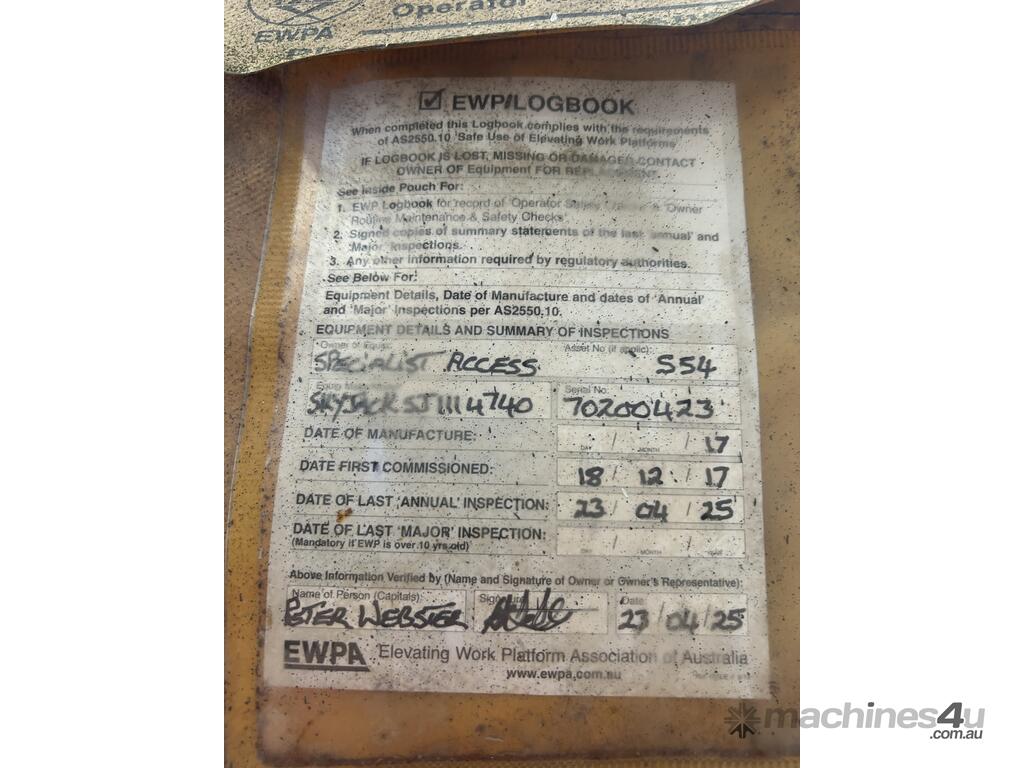 Operator
EWPA
EWP LOGBOOK
When completed this Logbook complies with the requirements
of AS2550.10 'Safe Use of Elevating Work Platforms'
IF LOGBOOK IS LOST, MISSING OR DAMAGED CONTACT
OWNER OF Equipment FOR REPLACEMENT.
See Inside Pouch For:
1. EWP Logbook for record of 'Operator & 'Owner
Routine Maintenance & Safety Checks'.
2. Signed copies of summary statements of the last 'annual' and
'Major' Inspections.
3. Any other information required by regulatory authorities.
See Below For:
Equipment Details, Date of Manufacture and dates of 'Annual'
and 'Major' Inspections per AS2550.10.
EQUIPMENT DETAILS AND SUMMARY OF INSPECTIONS
Owner of Equip: Asset No (if applic):
SPECIALIST ACCESS S54
Equip Serial No.
SKYJACK SJ1114740 70200423
DATE OF MANUFACTURE: DAY / MONTH / 17
DATE FIRST COMMISSIONED: 18 / 12 / 17
DATE OF LAST 'ANNUAL' INSPECTION: 23 / 04 / 25
DATE OF LAST 'MAJOR' INSPECTION: / /
(Mandatory if EWP is over 10 yrs old) DAY MONTH YEAR
Above Information Verified by (Name and Signature of Owner or Owner's Representative):
Name of Person (Capitals): Signature Date
PETER WEBSTER 23/04/25
EWPA Elevating Work Platform Association of Australia
www.ewpa.com.au
machines4u
.com.au